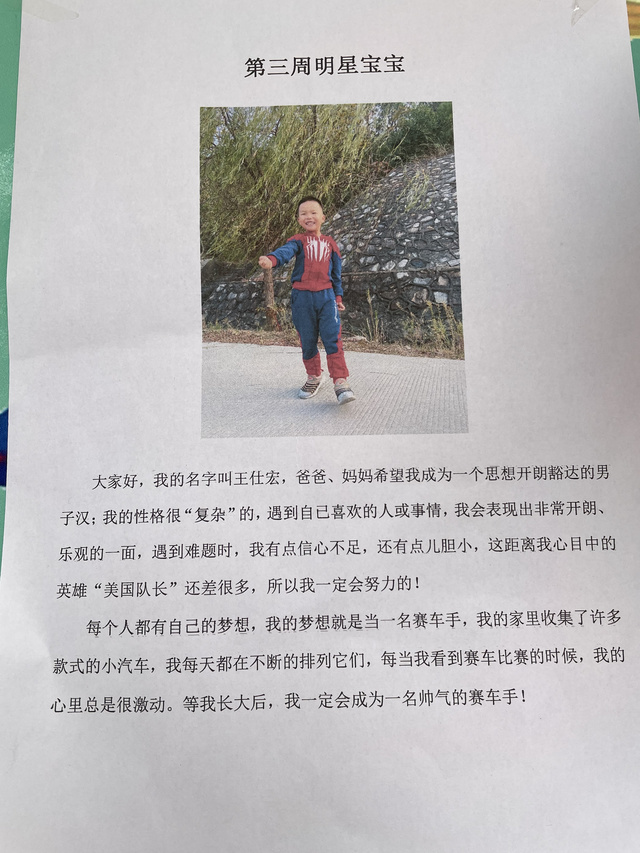 第三周明星宝宝
大家好，我的名字叫王仕宏，爸爸、妈妈希望我成为一个思想开朗豁达的男
子汉；我的性格很“复杂”的，遇到自已喜欢的人或事情，我会表现出非常开朗、
乐观的一面，遇到难题时，我有点信心不足，还有点儿胆小，这距离我心目中的
英雄“美国队长”还差很多，所以我一定会努力的！
每个人都有自己的梦想，我的梦想就是当一名赛车手，我的家里收集了许多
款式的小汽车，我每天都在不断的排列它们，每当我看到赛车比赛的时候，我的
心里总是很激动。等我长大后，我一定会成为一名帅气的赛车手！